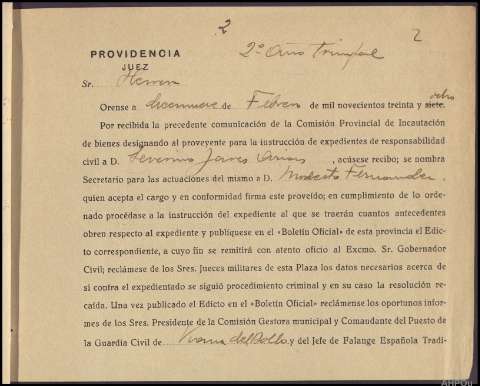 2
2
2º Año Triunfal
PROVIDENCIA
JUEZ
Sr. Herrera
Orense a diecinueve de Febrero de mil novecientos treinta y siete. ocho
Por recibida la precedente comunicación de la Comisión Provincial de Incautación
de bienes designando al proveyente para la instrucción de expedientes de responsabilidad
civil a D. Severino Arias, acúsese recibo; se nombra
Secretario para las actuaciones del mismo a D. Modesto Fernandez
quien acepta el cargo y en conformidad firma este proveído; en cumplimiento de lo orde-
nado procédase a la instrucción del expediente al que se traerán cuantos antecedentes
obren respecto al expediente y publíquese en el «Boletín Oficial» de esta provincia el Edic-
to correspondiente, a cuyo fin se remitirá con atento oficio al Excmo. Sr. Gobernador
Civil; reclámese de los Sres. Jueces militares de esta Plaza los datos necesarios acerca de
si contra el expedientado se siguió procedimiento criminal y en su caso la resolución re-
caída. Una vez publicado el Edicto en el «Boletín Oficial» reclámense los oportunos infor-
mes de los Sres. Presidente de la Comisión Gestora municipal y Comandante del Puesto de
la Guardia Civil de Viana del Bollo y del Jefe de Falange Española Tradi-
AHPOu